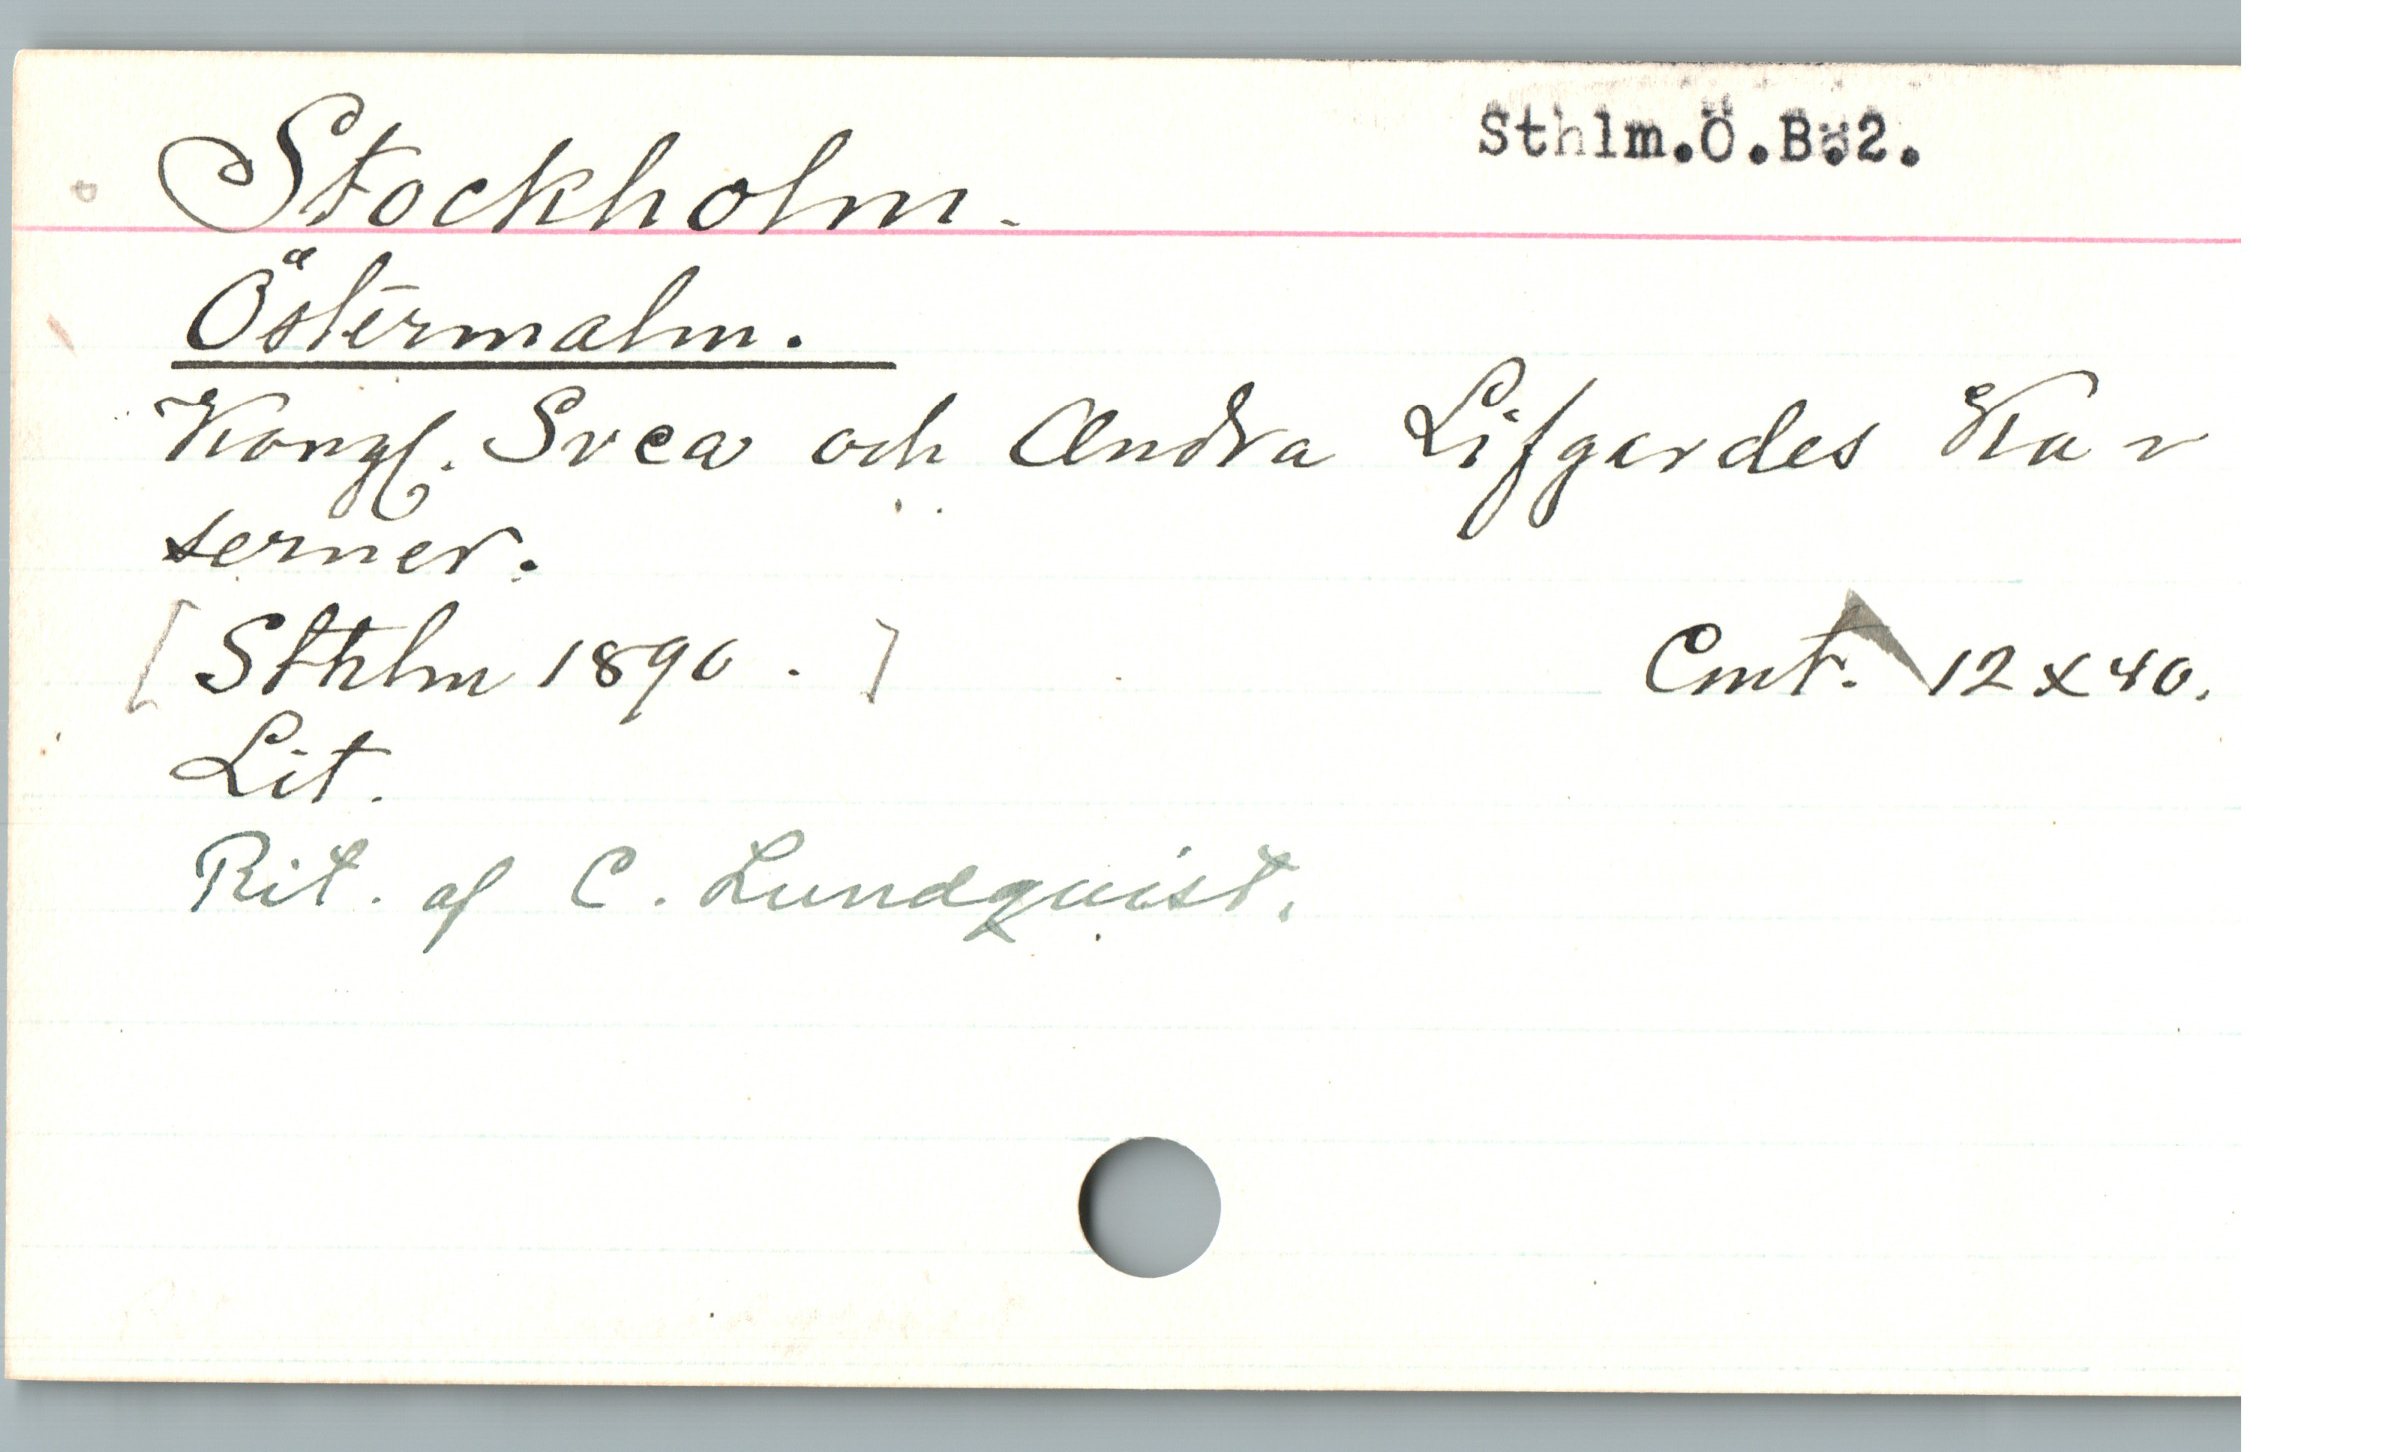 Sthlm.Ö.Bö2.
Stockholm.
Östermalm.
Kongl. Svea och Andra Lifgardes Ka
serner.
[Sthlm 1890.] Cmt. 12x40.
Lit.
Rit. af C. Lundquist.